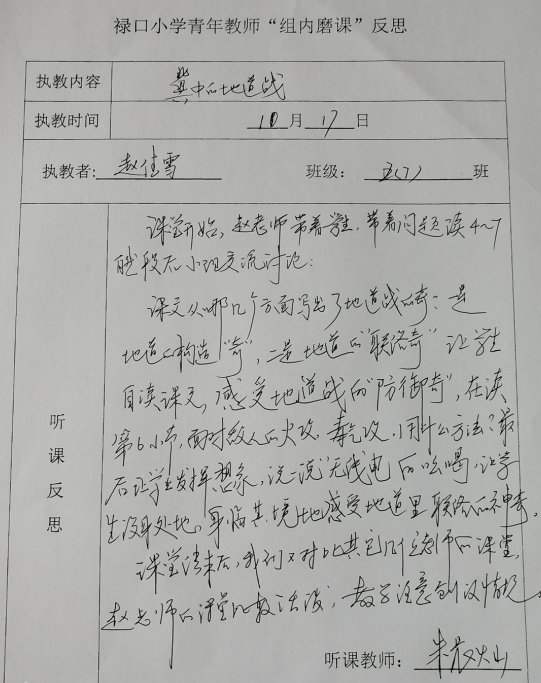 禄口小学青年教师“组内磨课”反思
执教内容 冀中的地道战
执教时间 10月17日
执教者: 赵佳雪 班级: 五(7) 班
听课反思
课堂开始，赵老师带着学生，带着问题读4~7
段后小组交流讨论：
课文从哪几个方面写出了地道战的奇：一是
地道的构造“奇”，二是地道的“联络奇”让学生
自读课文，感受地道战的“防御奇”，在读
第6小节，面对敌人的火攻、毒气攻，用什么方法？最
后让学生发挥想象，说一说“无线电”的吆喝，让学
生设身处地，身临其境地感受地道里联络的神奇。
课堂结束后，我们又对比其它几位老师的课堂，
赵老师的课堂比较活泼，教学注意创设情境。
听课教师: 朱